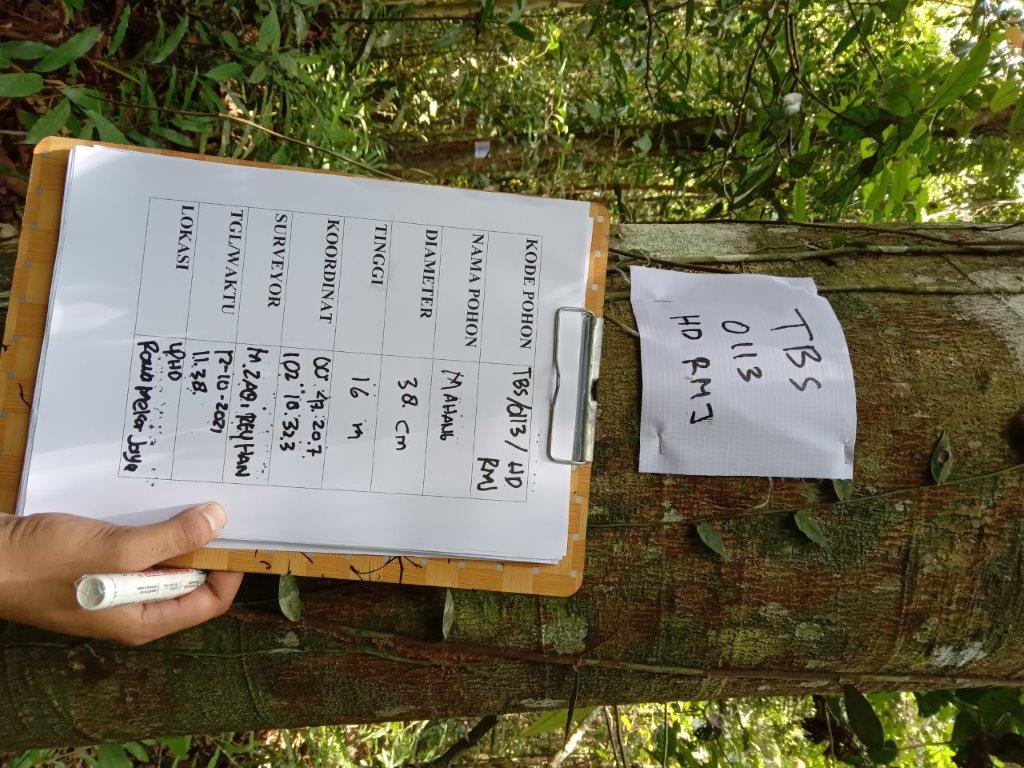 TBS
0113
HD RMJ
KODE POHON TBS/0113/ HD
RMJ
NAMA POHON MAHANG
DIAMETER 38 cm
TINGGI 16 m
KOORDINAT 00 47. 20.7
102 10. 32.3
SURVEYOR M. ZAQI REYHAN
TGL/WAKTU 12-10-2021
11.38.
LOKASI LPHD
Rawa Mekar Jaya